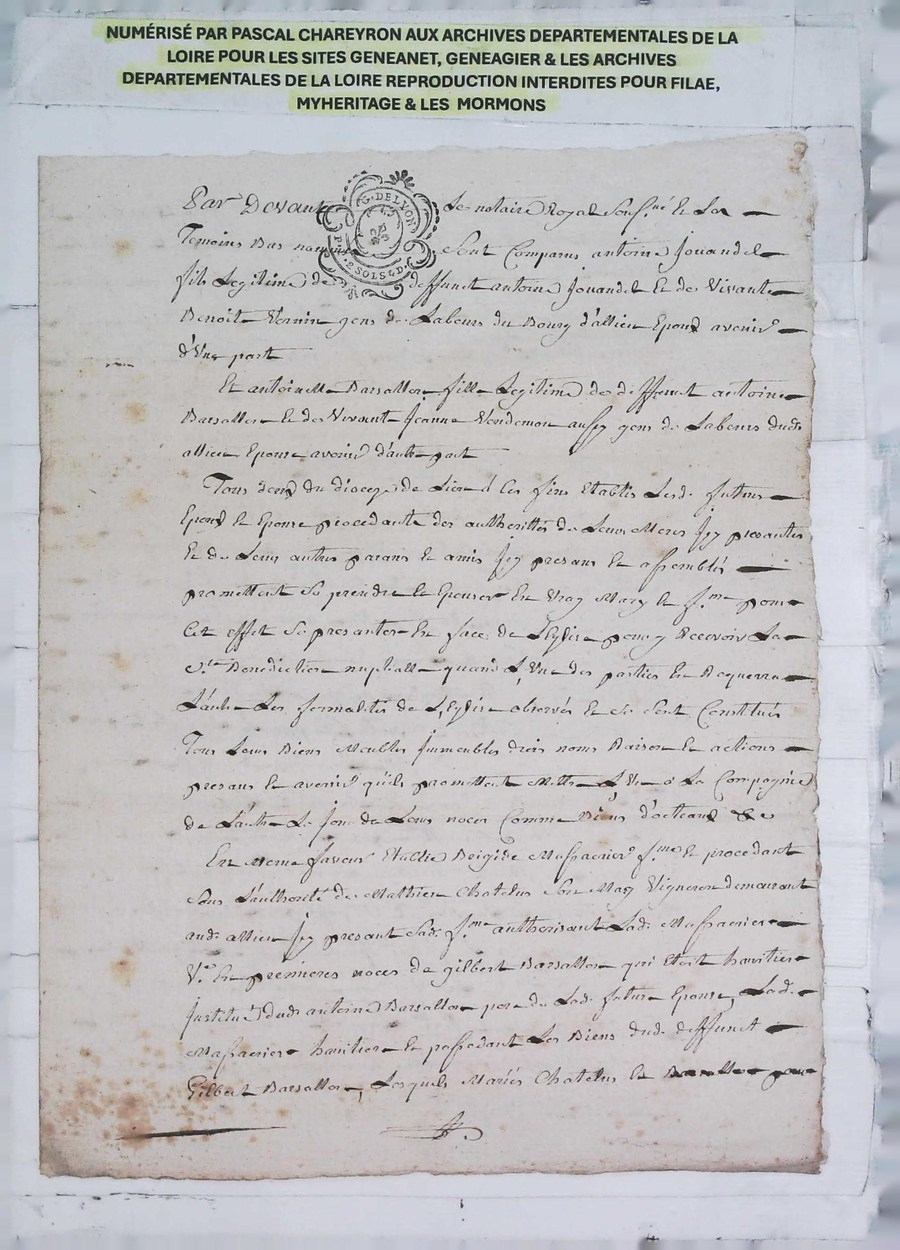 NUMÉRISÉ PAR PASCAL CHAREYRON AUX ARCHIVES DEPARTEMENTALES DE LA
LOIRE POUR LES SITES GENEANET, GENEAGIER & LES ARCHIVES
DEPARTEMENTALES DE LA LOIRE REPRODUCTION INTERDITES POUR FILAE,
MYHERITAGE & LES MORMONS
G. DE LYON
2 SOLS 4 D.
Par Devant Le notaire Royal Sous.né Et Les
Temoins Bas nommés Sont Comparus antoine Jouandel
fils Legitime de deffunct antoine Jouandel Et de Vivante
Benoit Vernin gens de Labeurs du Bourg d'allieu Epoux avenir
d'Une part
Et antoinette Barsallon fille Legitime de deffunct antoine
Barsallon Et de Vivant Jeanne Vendemon aussy gens de Labeurs dudt
allieu Epouse avenir d'autre part
Tous deux du dioceze de Lion à Ces fins Etablis Lesd. futurs
Epoux Et Epouse procedants des authorittés de Leurs Meres Jcy presantes
Et de Leurs autres parans Et amis Jcy presans Et assemblés
promettent Se prendre Et Epouser En Vray Mary Et f.me pour
Cet effet Se presanter En face de L'Eglise pour y Recevoir La
S.te Benediction nuptialle quand L'Une des parties En Requerra
L'autre Les formalités de L'Eglise observés Et Se Sont Constitués
Tous Leurs Biens Meubles Jmmeubles drois noms Raison Et actions
presans Et avenir qu'ils promettent Mettre L'Un à La Compagnie
de L'autre Le jour de Leurs noces Comme Biens d'octeaux &c
En Meme faveur Etablie Brigide Massacrier f.me Et procedant
Sous L'authorité de Mathieu Chatelus Son Mary Vigneron demeurant
aud. allieu Jcy presant Sad. f.me authorisant Lad. Massacrier
V.e En premieres noces de gilbert Barsallon qui Etoit heritier
Jnstitué dud. antoine Barsallon pere de Lad. future Epouse, Lad.
Massacrier heritier Et possedant Les Biens dud. deffunct
Gilbert Barsallon, Lesquels Mariés Chatelus Et pour